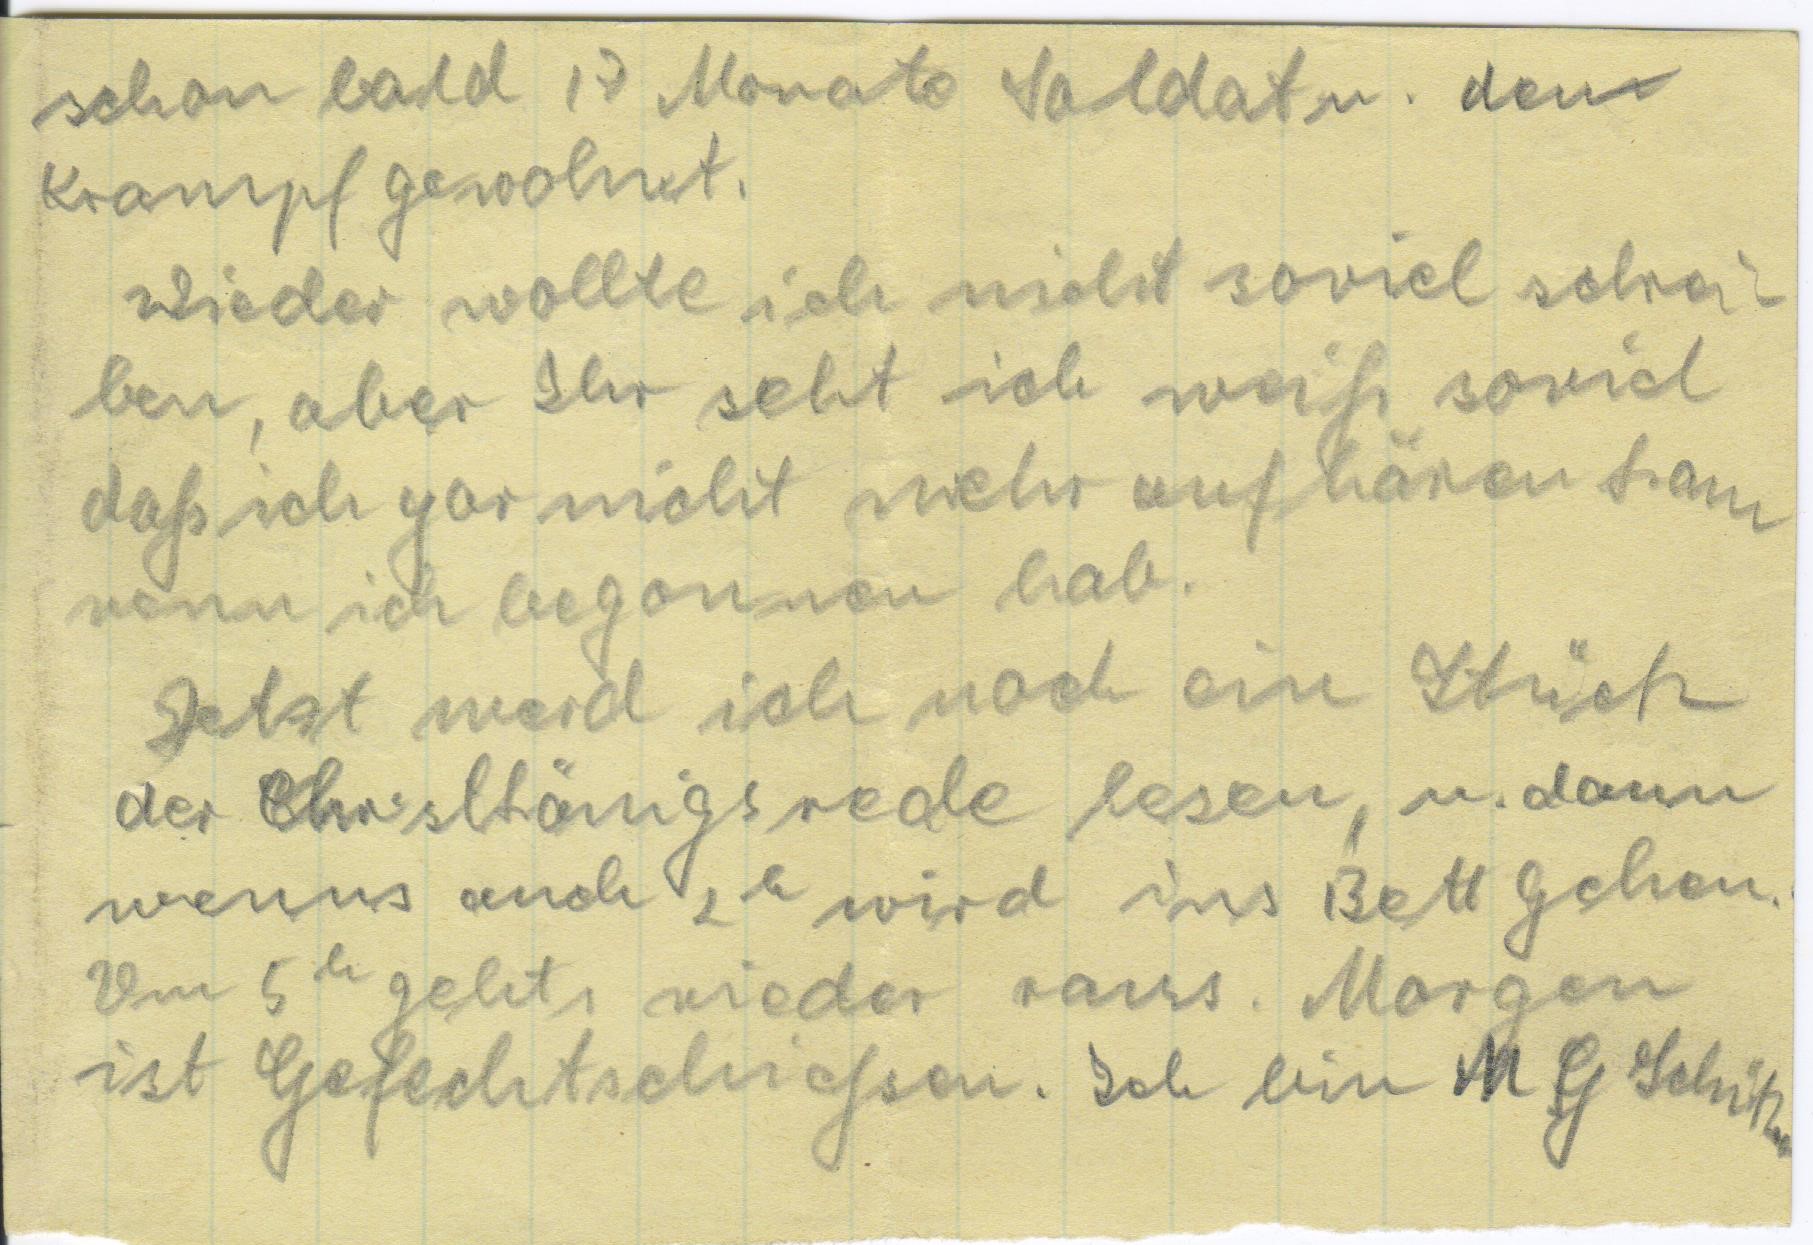 schon bald 18 Monate Soldat u. den
Krampf gewohnt.
Wieder wollte ich nicht soviel schrei-
ben, aber Ihr seht ich weiß soviel
daß ich gar nicht mehr aufhören kann
wenn ich begonnen hab.
Jetzt werd ich noch ein Stück
der Christkönigsrede lesen, u. dann
wenns auch 2h wird ins Bett gehen.
Um 5h gehts wieder rauss. Morgen
ist Gefechtschießen. Ich bin MG Schütze